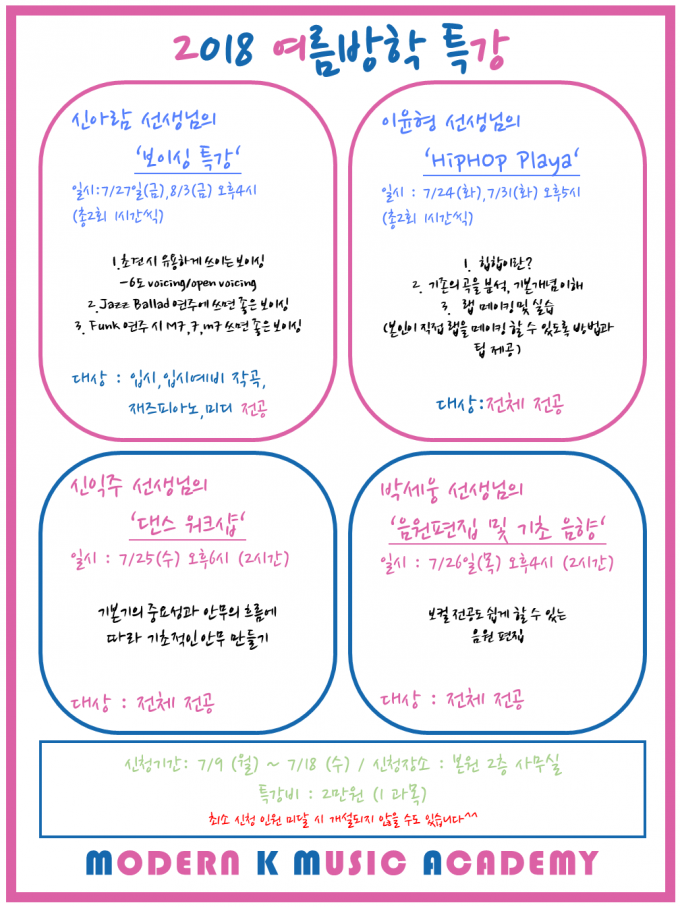 2018 여름방학 특강
신아람 선생님의
'보이싱 특강'
일시:7/27일(금),8/3(금) 오후4시
(총2회 1시간씩)
1.초견 시 유용하게 쓰이는 보이싱
-6도 voicing/open voicing
2.Jazz Ballad 연주에 쓰면 좋은 보이싱
3. Funk 연주 시 M7,7,m7 쓰면 좋은 보이싱
대상 : 입시,입시예비 작곡,
재즈피아노,미디 전공
이윤형 선생님의
'HIPHOP Playa'
일시 : 7/24(화),7/31(화) 오후5시
(총2회 1시간씩)
1. 힙합이란?
2. 기존의 곡을 분석, 기본개념 이해
3. 랩 메이킹 및 실습
(본인이 직접 랩을 메이킹 할 수 있도록 방법과
팁 제공)
대상:전체 전공
신익주 선생님의
'댄스 워크샵'
일시 : 7/25(수) 오후6시 (2시간)
기본기의 중요성과 안무의 흐름에
따라 기초적인 안무 만들기
대상 : 전체 전공
박세웅 선생님의
'음원편집 및 기초 음향'
일시 : 7/26일(목) 오후4시 (2시간)
보컬 전공도 쉽게 할 수 있는
음원 편집
대상 : 전체 전공
신청기간: 7/9 (월) ~ 7/18 (수) / 신청장소 : 본원 2층 사무실
특강비 : 2만원 (1 과목)
최소 신청 인원 미달 시 개설되지 않을 수도 있습니다^^
MODERN K MUSIC ACADEMY